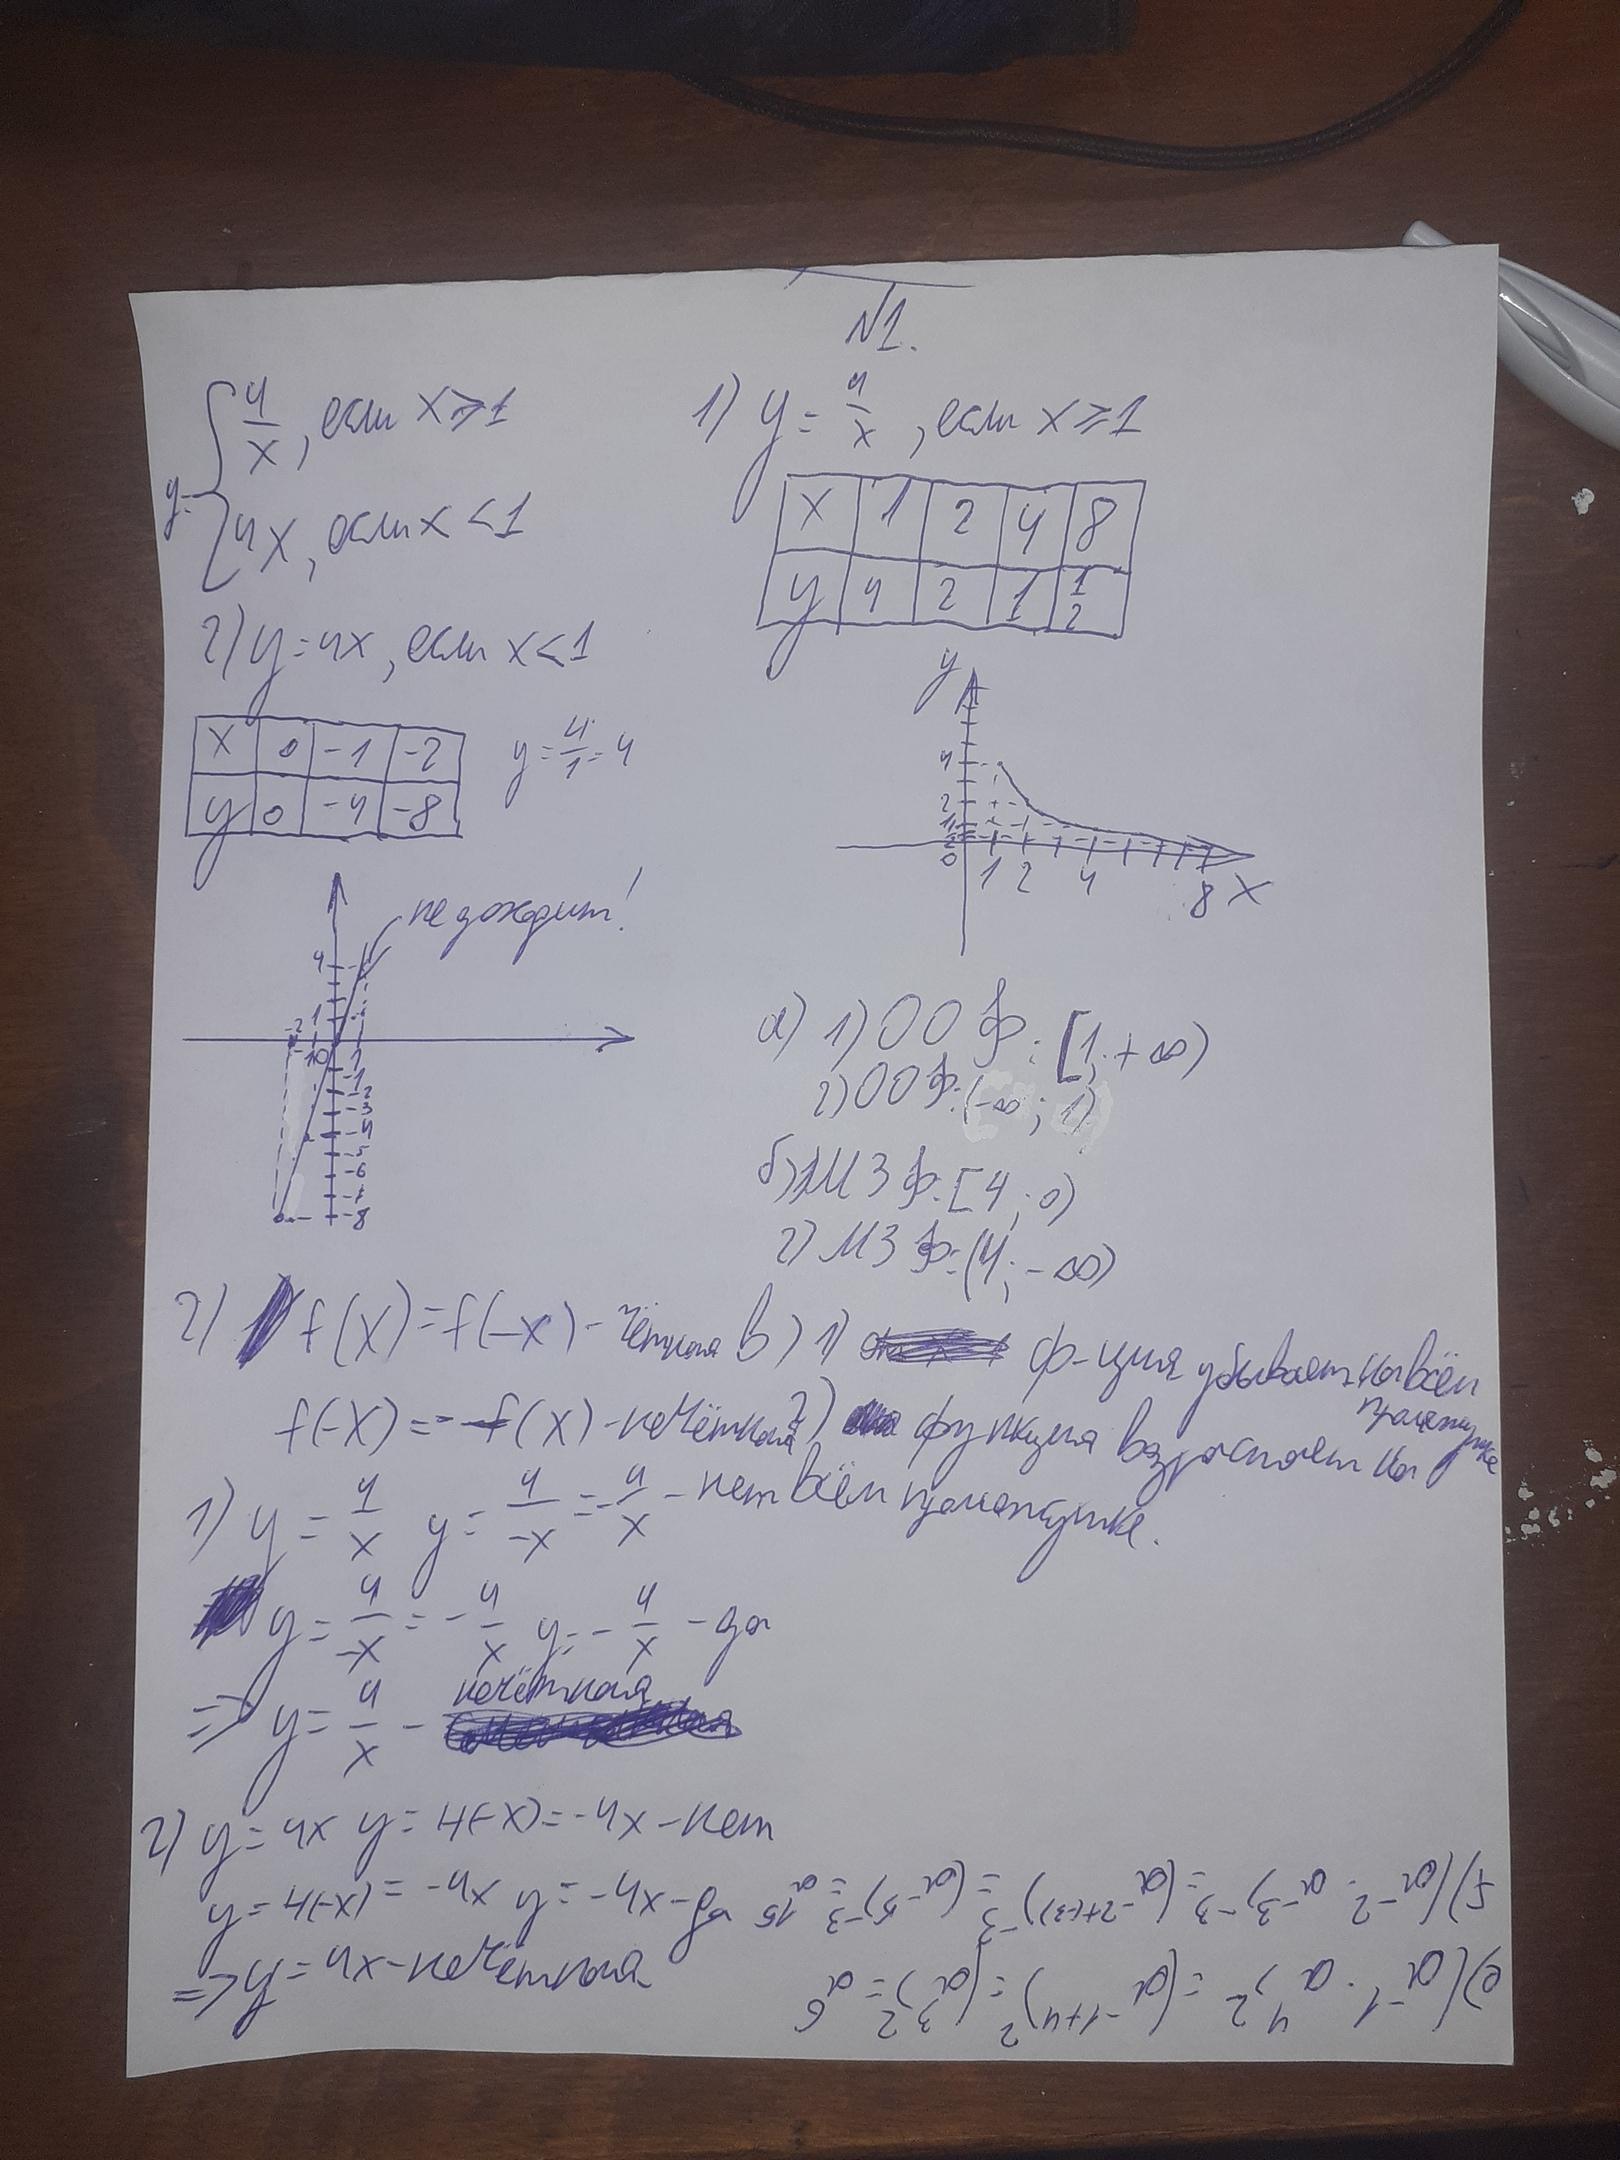 N1.
y= { 4/x, если x⩾1
4x, если x<1
1) y = 4/x, если x⩾1
x 1 2 4 8
y 4 2 1 1/2
2) y=4x, если x<1
x 0 -1 -2
y 0 -4 -8
y=4/1=4
y
4
2
1
1/2
0 1 2 4 8 x
не доходит!
4
1
-2 -1 0 1
-1
-2
-3
-4
-5
-6
-7
-8
а) 1) ООФ: [1;+∞)
2) ООФ: (-∞; 1)
б) 1) МЗФ: [4; 0)
2) МЗФ: (4; -∞)
2) f(x)=f(-x) - чётная
f(-x)=-f(x) - нечётная
в) 1) ф-ция убывает на всём промежутке
2) функция возрастает на всём промежутке.
1) y = 4/x y = 4/-x = -4/x - нет
y = 4/-x = -4/x y = -4/x - да
=> y = 4/x - нечётная
2) y=4x y=4(-x)=-4x - нет
y=4(-x)=-4x y=-4x - да
=> y=4x - нечётная
е) (a⁻¹ · a⁴)² = (a⁻¹⁺⁴)² = (a³)² = a⁶
f) (a⁻² · a⁻³)⁻³ = (a⁻²⁺⁽⁻³⁾)⁻³ = (a⁻⁵)⁻³ = a¹⁵